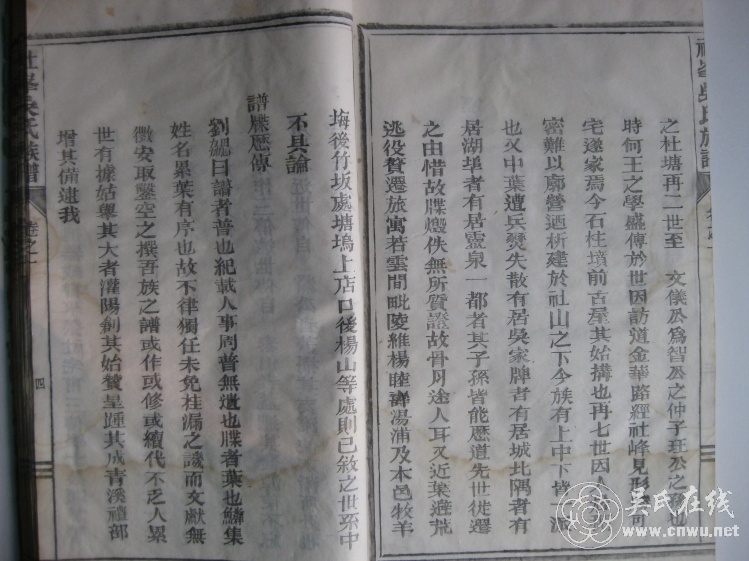 之杜塘再二世至 文儀公為智公之仲子班公之孫也
時何王之學盛傳於世因訪道金華路經社峰見形勝可
宅遂家焉今石柱墳前古屋其始搆也再七世因人
密難以廓營迺析建於社山之下今族有上中下皆派
也又中葉遭兵燹失散有居吳家牌者有居城北隅者有
居湖埠者有居靈泉一都者其子孫皆能歷道先世徙遷
之由惜故牒燬佚無所質證故骨月途人耳又近葉避荒
逃役贅遷旅寓若雲間毗陵維楊睦嶧湯浦及木邑牧羊
塢後竹坂處塘塢上店口後楊山等處則已敘之世系中
不具論
譜牒歷傳
劉勰曰譜者普也紀載人事周普無遺也牒者葉也鱗集
姓名累葉有序也故不律獨任未免桂漏之譏而文獻無
徵安取鑿空之撰吾族之譜或作或修或續代不乏人累
世有據姑舉其大者灌陽創其始贊皇踵其成青溪禮部
增其備逮我
社峯吳氏族譜
卷之一
四
吳氏在线
www.cnwu.net